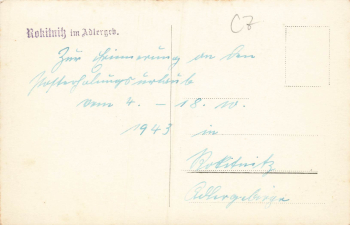 CZ
Rokitnitz im Adlergeb.
Zur Erinnerung an den
vom 4. - 18. 10.
1943 in
Rokitnitz
Adlergebirge